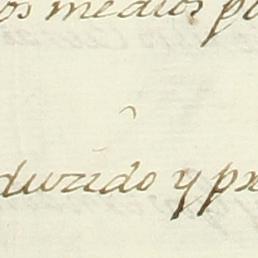 os medios p
duzido y pr